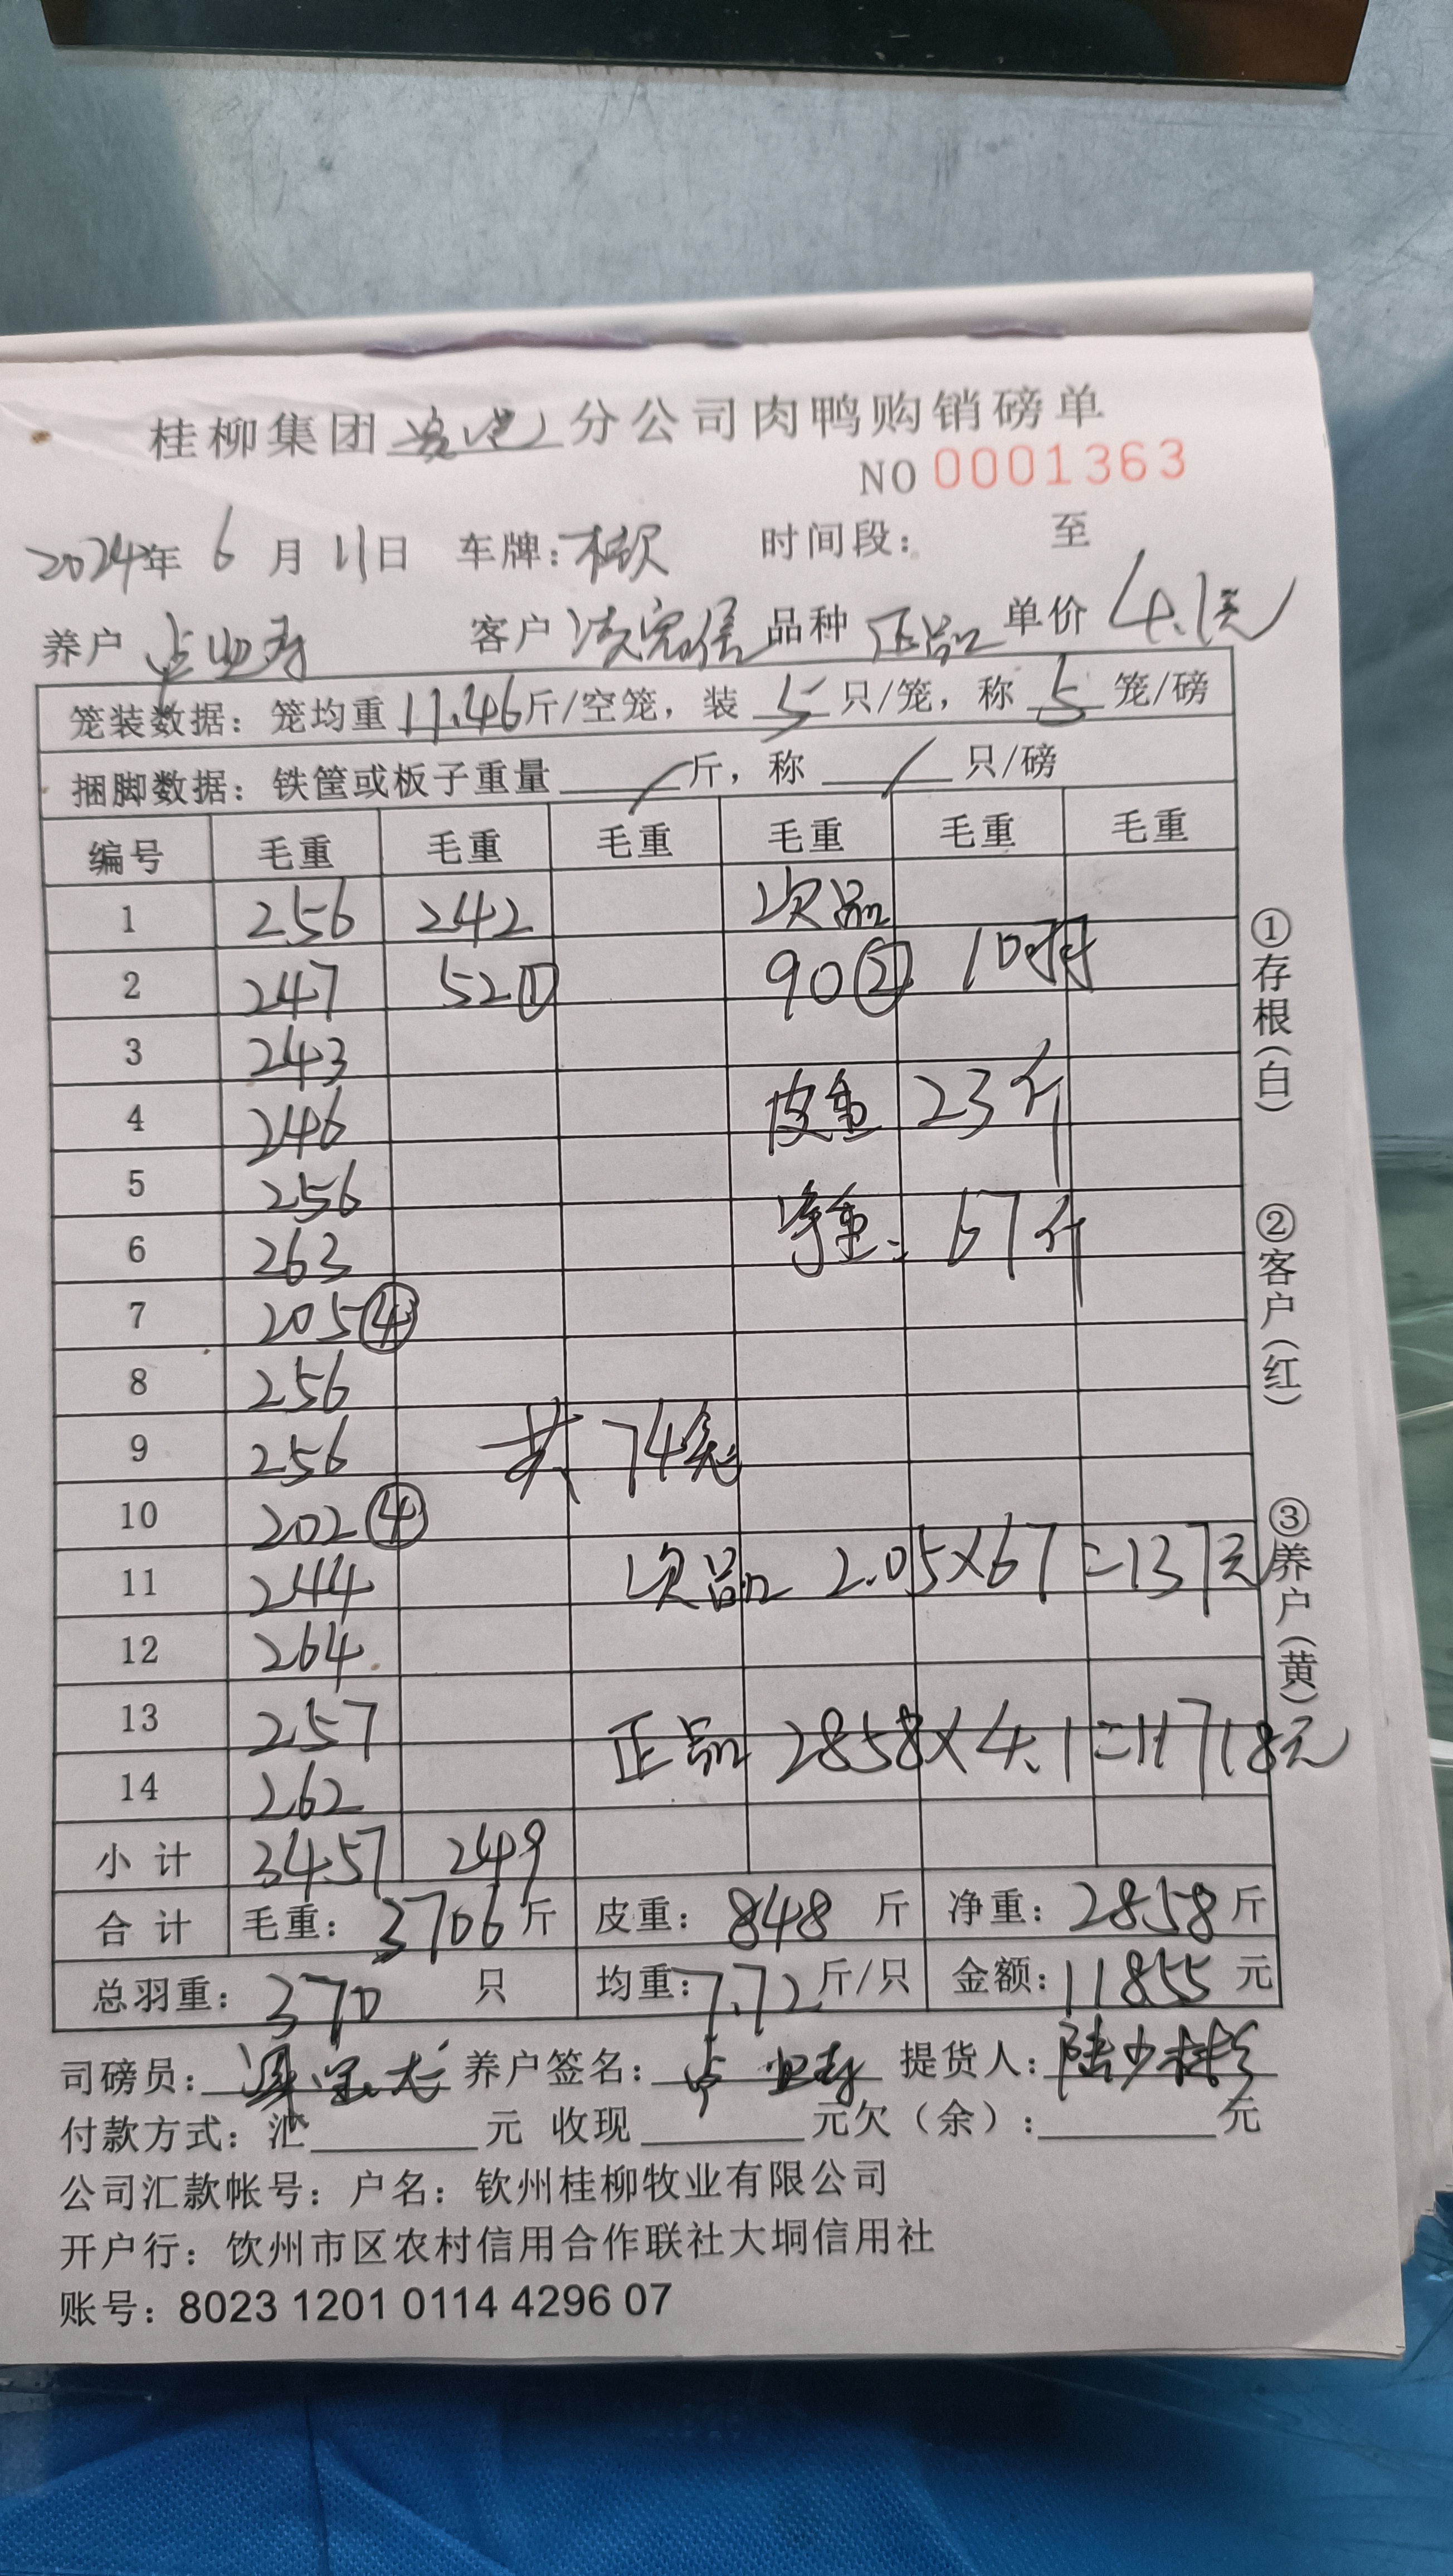 桂柳集团 分公司肉鸭购销磅单
NO 0001363
2024年 6 月 11日 车牌: 时间段: 至
养户 客户 品种 正品 单价 4.1元
笼装数据: 笼均重 11.46斤/空笼, 装 5 只/笼, 称 5 笼/磅
捆脚数据: 铁筐或板子重量 / 斤, 称 / 只/磅
编号 毛重 毛重 毛重 毛重 毛重 毛重
1 256 242 次品
2 247 52① 90② 10只
3 243
4 246 皮重 23斤
5 256
6 263 净重: 67斤
7 205④
8 256
9 256 共 74笼
10 202④
11 244 次品 2.05×67=137元
12 264
13 257 正品 2858×4.1=11718元
14 262
小计 3457 249
合计 毛重: 3706斤 皮重: 848 斤 净重: 2858斤
总羽重: 370 只 均重: 7.72斤/只 金额: 11855 元
司磅员: 养户签名: 提货人: 陆少彬
付款方式: 汇 元 收现 元欠（余）: 元
公司汇款帐号: 户名: 钦州桂柳牧业有限公司
开户行: 饮州市区农村信用合作联社大垌信用社
账号: 8023 1201 0114 4296 07
①存根（白）
②客户（红）
③养户（黄）